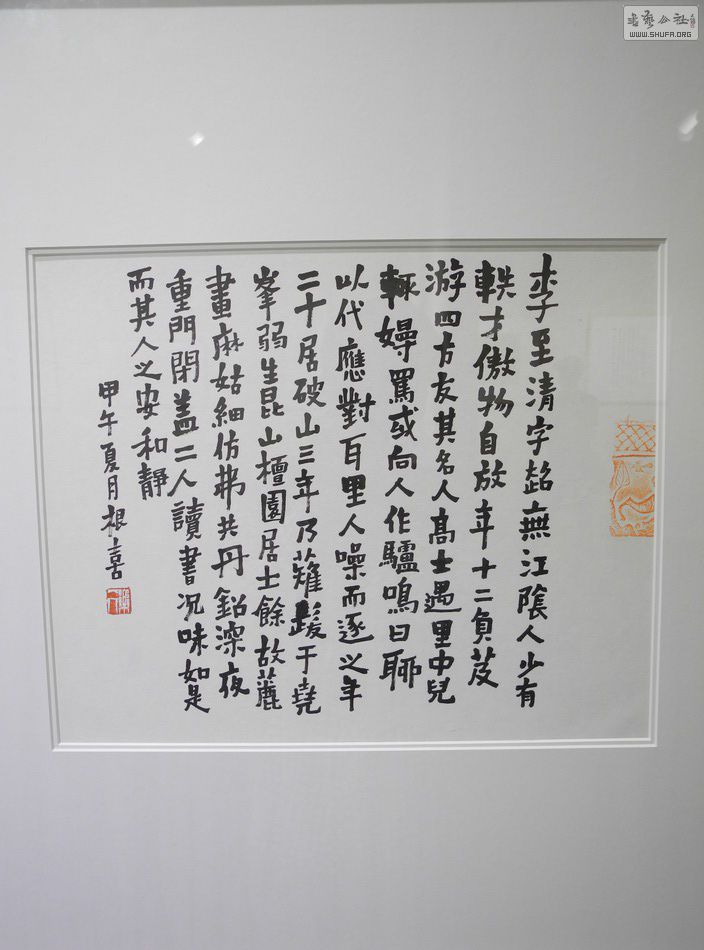 李至清字超無江隂人少有
軼才傲物自放年十二負芨
游四方友其名人高士遇里中兒
輒嫚罵或向人作驢鳴曰聊
以代應對百里人噪而逐之年
二十居破山三年乃薙髮于堯
峯弱生昆山檀園居士餘故麓
畫麻姑細仿弗共丹鉛深夜
重門閉蓋二人讀書況味如是
而其人之安和靜
甲午夏月根喜
書藝公社
WWW.SHUFA.ORG